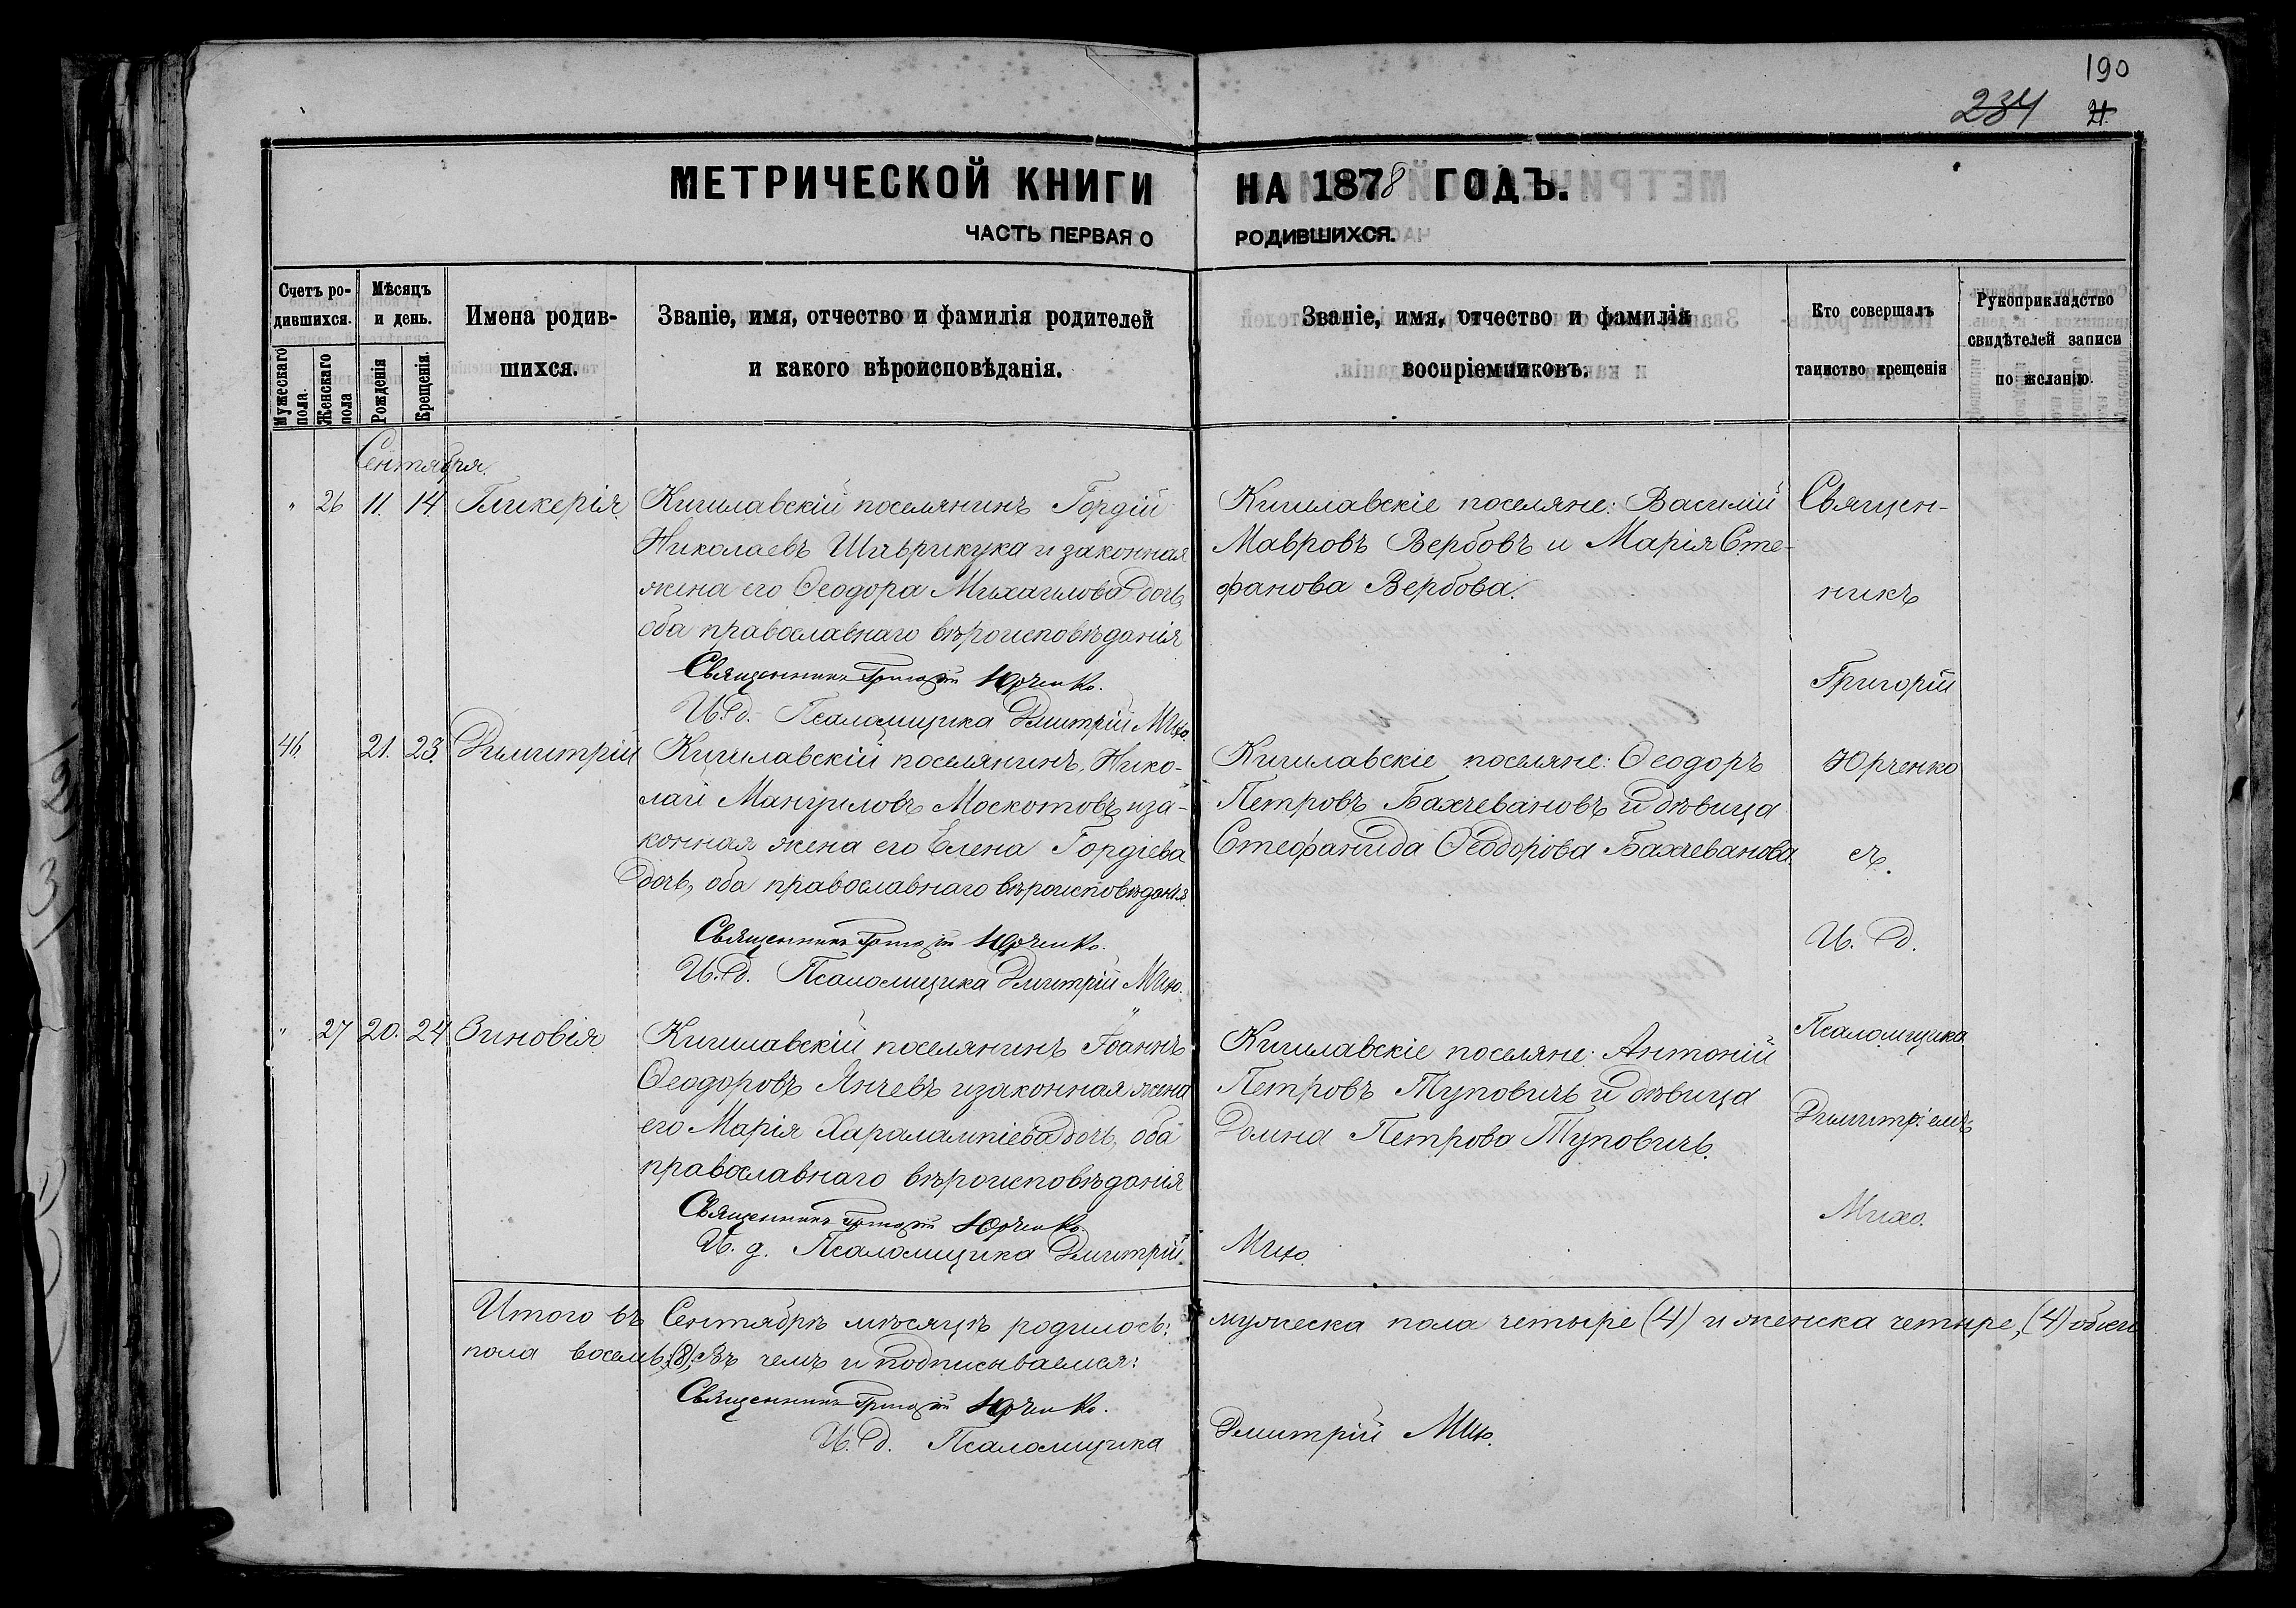 190
234 21.
МЕТРИЧЕСКОЙ КНИГИ НА 1878 ГОДЪ.
ЧАСТЬ ПЕРВАЯ О РОДИВШИХСЯ.
Счетъ ро-
дившихся.
Мужескаго пола.
Женскаго пола
Мѣсяцъ
и день.
Рожденія
Крещенія.
Имена родив-
шихся.
Званіе, имя, отчество и фамилія родителей
и какого вѣроисповѣданія.
Званіе, имя, отчество и фамилія
воспріемниковъ.
Кто совершалъ
таинство крещенія
Рукоприкладство
свидѣтелей записи
по желанію.
Сентября.
" 26 11. 14. Гликерія.
Кишлавскій поселянинъ Гордій
Николаевъ Шаврикука и законная
жена его Ѳеодора Михаилова дочь,
оба православнаго вѣроисповѣданія
Священникъ Григорій Юрченко.
И. д. Псаломщика Дмитрій Михо.
Кишлавскіе поселяне: Василій
Мавровъ Вербовъ и Марія Сте-
фанова Вербова.
46. 21. 23. Димитрій
Кишлавскій поселянинъ, Нико-
лай Мануиловъ Москотовъ и за-
конная жена его Елена Гордіева
дочь, оба православнаго вѣроисповѣданія.
Священникъ Григорій Юрченко.
И. д. Псаломщика Дмитрій Михо.
Кишлавскіе поселяне: Ѳеодоръ
Петровъ Бахчевановъ и дѣвица
Стефанида Ѳеодорова Бахчеванова.
" 27 20. 24 Зиновія.
Кишлавскій поселянинъ Іоаннъ
Ѳеодоровъ Янчевъ и законная жена
его Марія Харалампіева дочь, оба
православнаго вѣроисповѣданія
Священникъ Григорій Юрченко.
И. д. Псаломщика Дмитрій Михо.
Кишлавскіе поселяне: Антоній
Петровъ Туповичъ и дѣвица
Домна Петрова Туповичъ.
Священ-
никъ
Григорій
Юрченко
съ
И. д.
Псаломщика
Димитріемъ
Михо.
Итого въ Сентябрѣ мѣсяцѣ родилось: мужеска пола четыре (4) и женска четыре, (4) обоего
пола восемь, (8). Въ чемъ и подписываемся:
Священникъ Григорій Юрченко.
И. д. Псаломщика Дмитрій Михо.